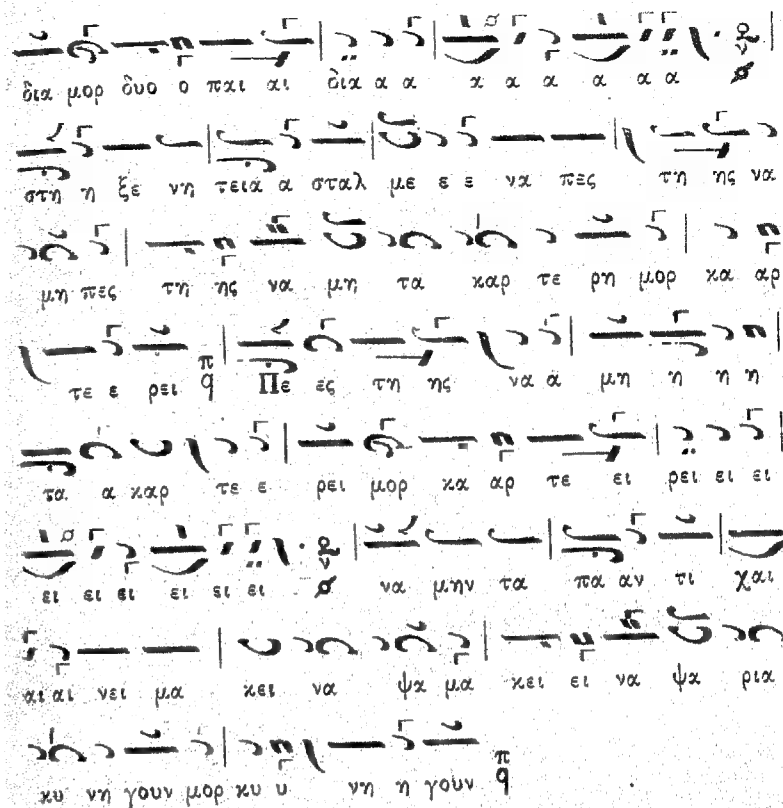 δια μορ δυο ο παι αι δια α α α α α α α α
στη η ξε νη τειά α σταλ με ε ε να πες τη ης να
μη πες τη ης να μη τα καρ τε ρη μορ κα αρ
τε ε ρει π q Πε ες τη ης να α μη η η η
τα α καρ τε ε ρει μορ κα αρ τε ει ρει ει ει
ει ει ει ει ει ει να μην τα πα αν τι χαι
αι αι νει μα κει να ψα μα κει ει να ψα ρια
κυ νη γουν μορ κυ υ νη η γουν π q